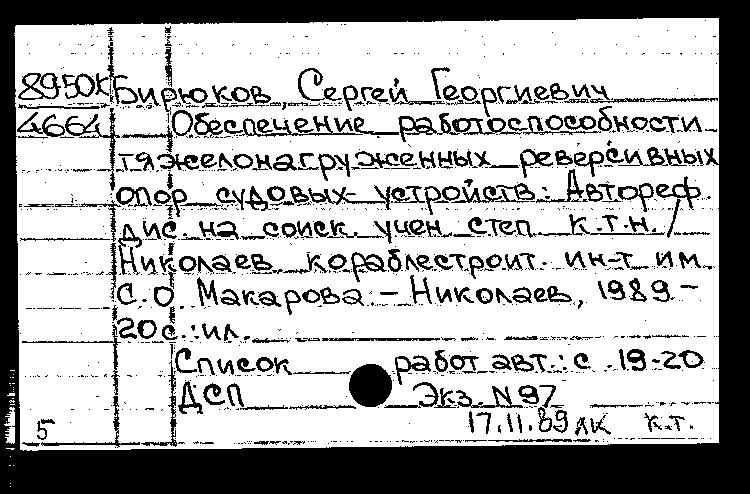 8950К Бирюков, Сергей Георгиевич
4664 Обеспечение работоспособности
тяжелонагруженных реверсивных
опор судовых устройств: Автореф.
дис. на соиск. учен степ. к.т.н. /
Николаев. кораблестроит. ин-т им.
С.О. Макарова. - Николаев, 1989. -
20с.: ил.
Список работ авт.: с. 19-20
ДСП Экз. N97
5 17.11.89 ЛК к.т.